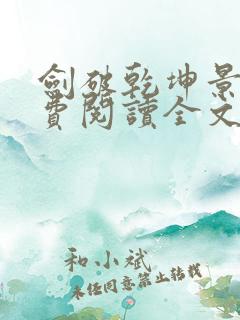 劍破乾坤景
費閱讀全文
和小斌
未經同意禁止轉載